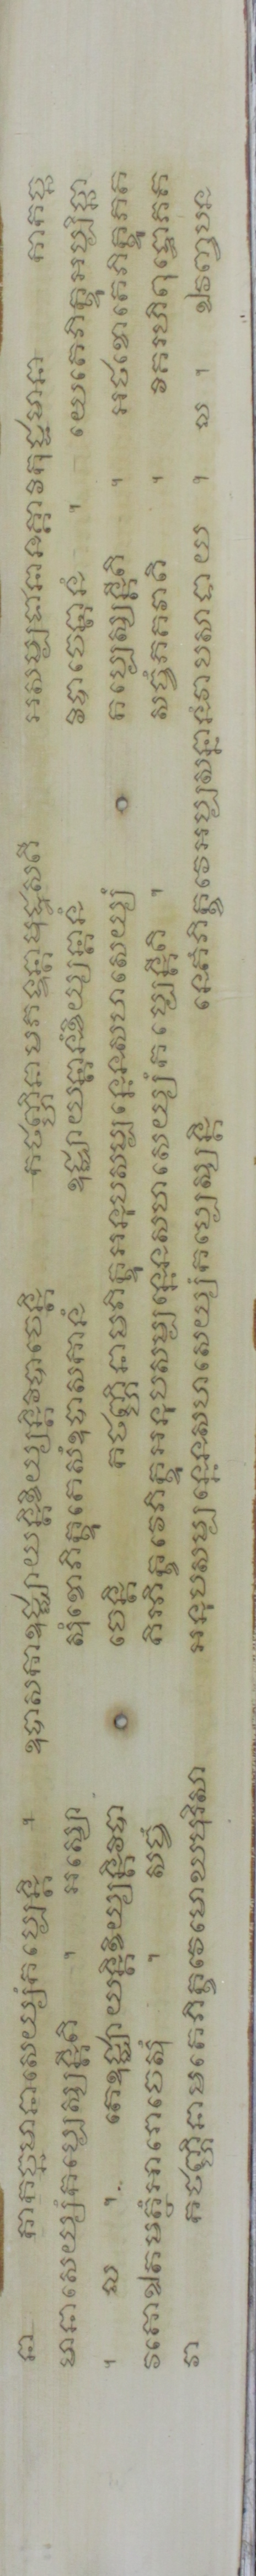 នា កាកច្ឆមានាសេយ្យំកប្បេន្តិ ។ ឧបាសកាឧជ្ឈាយន្តិខិយ្យន្តិវិបាចេន្តិ កថញ្ហិនាមភទន្តាមុដ្ឋសតី អសម្បជានានគ្គាវិកុជ្ជមានា កាកច្ឆ
មានាសេយ្យំកប្បេស្សន្តីតិ ។ អស្សោ សុំខោភិក្ខូតេសំឧបាសកានំ ឧជ្ឈាយន្តានំខិយ្យន្តានំ វិបាចេន្តានំ ។ យេតេភិក្ខូអប្បិច្ឆា
។ ល ។ តេឧជ្ឈាយន្តិខិយ្យន្តិវិបា ចេន្តិ កថញ្ហិនាមភិក្ខូអនុបសម្បន្នេនសហសេយ្យំ កប្បេស្សន្តីតិ ។ អថខោតេភិក្ខូភគ
វតោឯតមត្ថំអារោចេសុំ ។ សច្ចំ កិរភិក្ខវេភិក្ខូអនុបសម្បន្នេនសហសេយ្យំកប្បេន្តីតិ ។ សច្ចំភគវាតិ ។ វិគរហិពុទ្ធោភគ
វា កថញ្ហិនាមតេភិក្ខវេមោឃបុរិសា អនុបសម្បន្នេនសហសេយ្យំកប្បេស្សន្តិ នេតំភិក្ខវេអប្បសន្នានំវាបសាទាយ ។ ល ។ ឯវញ្ចបន